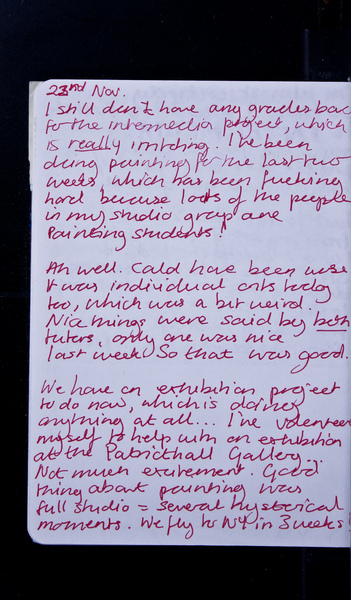 22nd Nov.
I still don't have any grades bac
for the intermedia project, which
is really irritating. I've been
doing painting for the last two
weeks, which has been fucking
hard because loads of the people
in my studio group are
Painting students!
Ah well. Could have been worse
It was individual crits today
too, which was a bit weird.
Nice things were said by both
tutors, only one was nice
last week. So that was good.
We have an exhibition project
to do now, which is doing
anything at all... I've volunteer
myself to help with an exhibition
at the Patrickhall Gallery...
Not much excitement. Good
thing about painting was
full studio = several hysterical
moments. We fly to NY in 3 weeks!